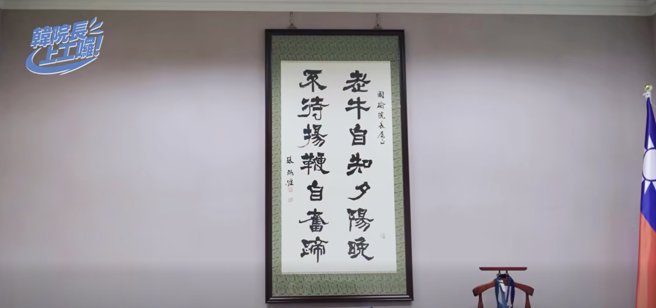 韓院長
上工囉!
國瑜院長
老牛自知夕陽晚
不待揚鞭自奮蹄